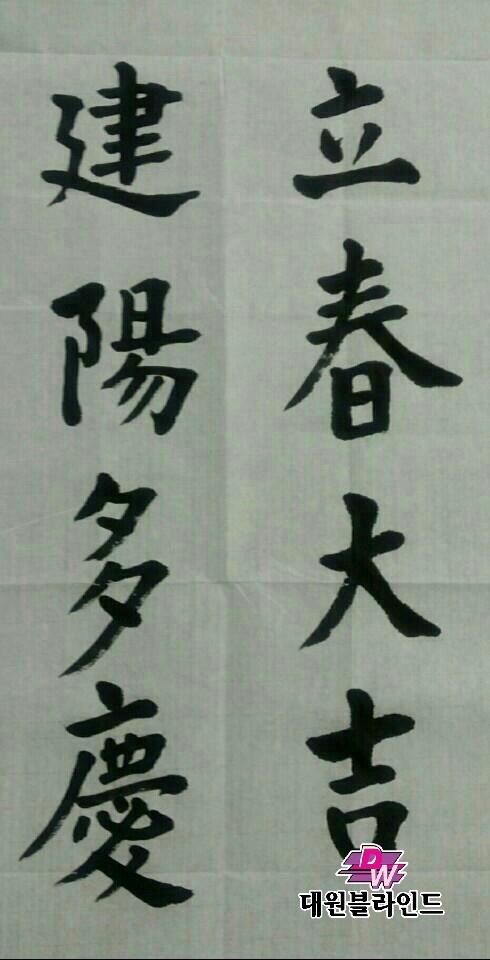 立春大吉
建陽多慶
DW
대원블라인드